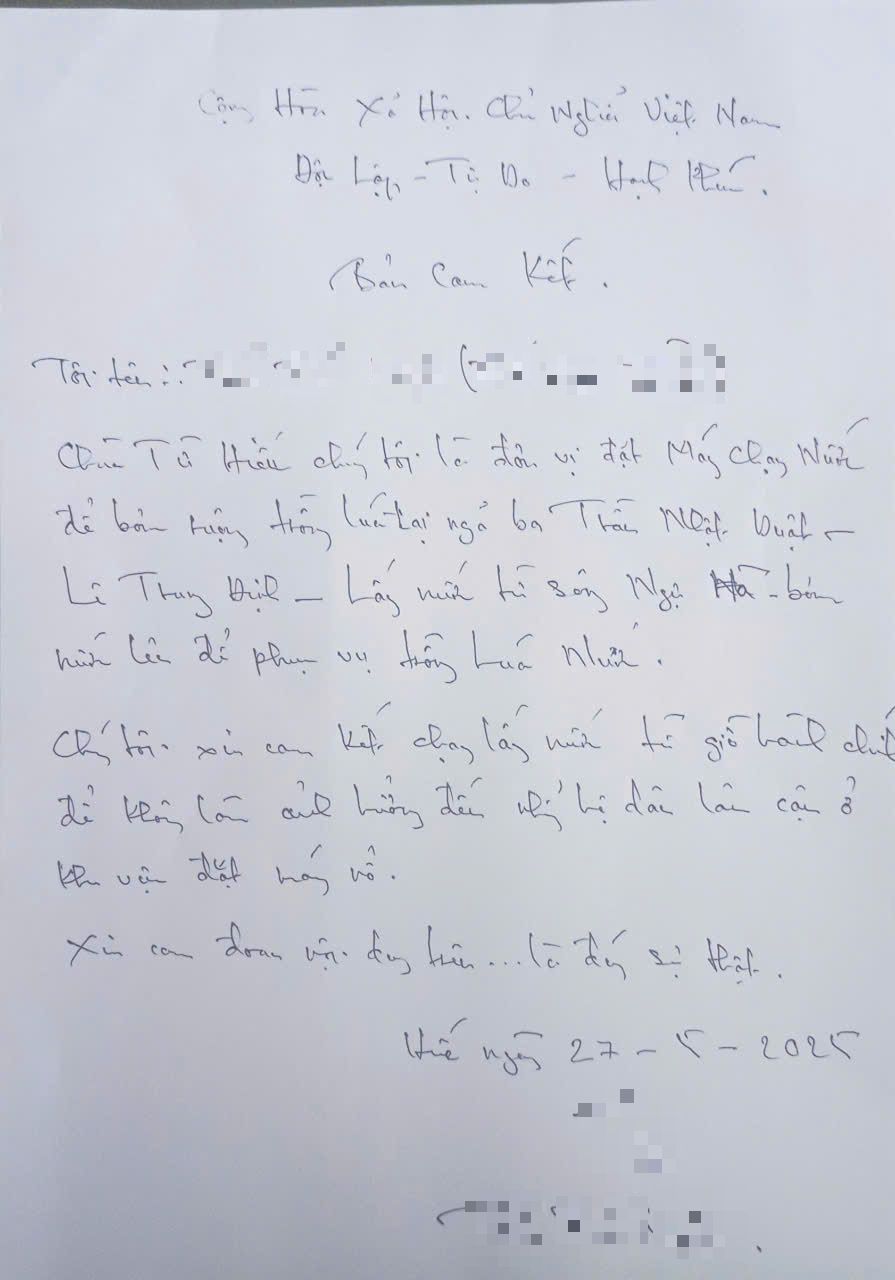 Cộng Hòa Xả Hội Chủ Nghiả Việt Nam
Độc Lập - Tự Do - Hạnh Phúc.
Bản Cam Kết.
Tôi tên:
Chùa Từ Hiếu chúng tôi là đơn vị đặt Máy Chạy Nước
để bơm ruộng trồng lúa tại ngả ba Trần Nhật Duật -
Lê Trung Định - Lấy nước từ sông Ngự Hà - bơm
nước lên để phục vụ trồng Luá Nước.
Chúng tôi xin cam Kết chạy lấy nước từ giờ hành chính
để không làm ảnh hưởng đến những hộ dân lân cận ở
khu vực đặt máy nổ.
Xin cam đoan nội dung trên... là đúng sự thật.
Huế ngày 27 - 5 - 2025